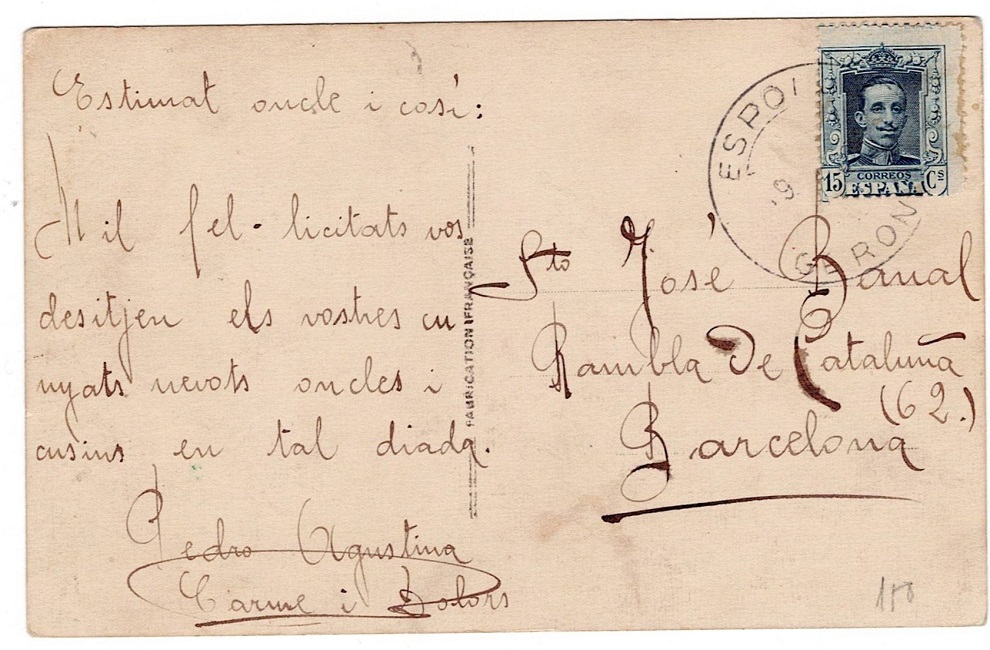 Estimat oncle i cosí:
Mil fel·licitats vos
desitjen els vostres cu
nyats nevots oncles i
cusins en tal diada.
Pedro Agustina
Carme i Dolors
FABRICATION FRANÇAISE
ESPO
9
GERON
15 CORREOS Cs
ESPAÑA
Sto José
Rambla De Cataluña
(62.)
Barcelona